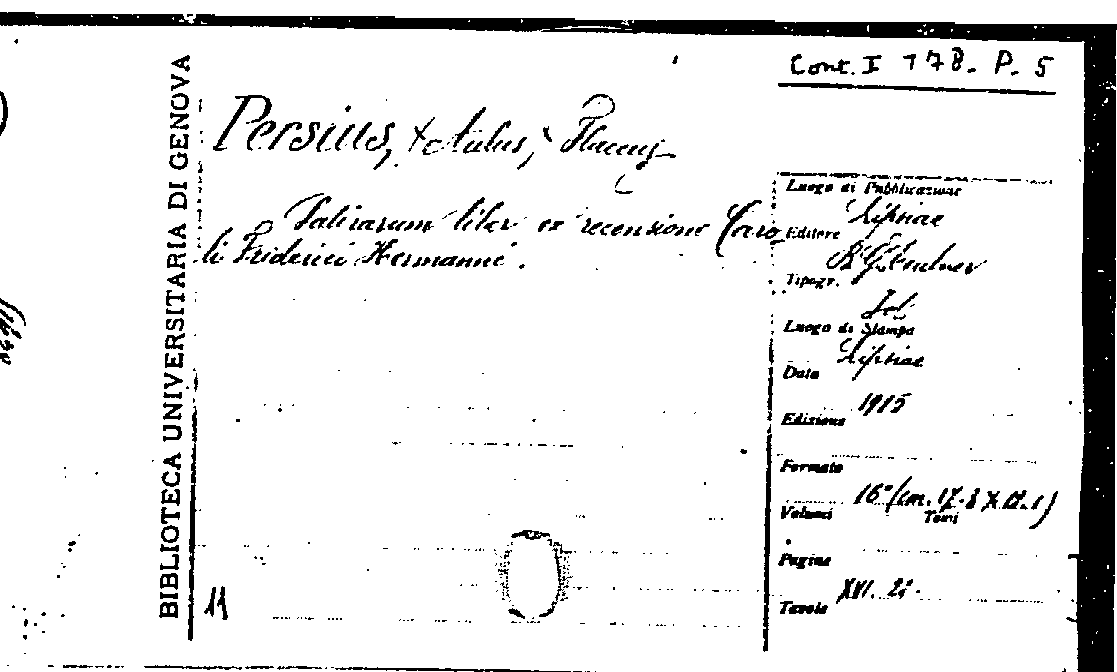 BIBLIOTECA UNIVERSITARIA DI GENOVA
Cont. I 178. P. 5
Persius, + Aulus, Flaccus
Satirarum liber ex recensione Caro
li Friderici Hermanni.
Luogo di Pubblicazione
Lipsiae
Editore
B. G. Teubner
Tipogr.
Id.
Luogo di Stampa
Lipsiae
Data
1915
Edizione
Formato
16° (cm.
Volumi Tomi
Pagine
XVI.
Tavole
11